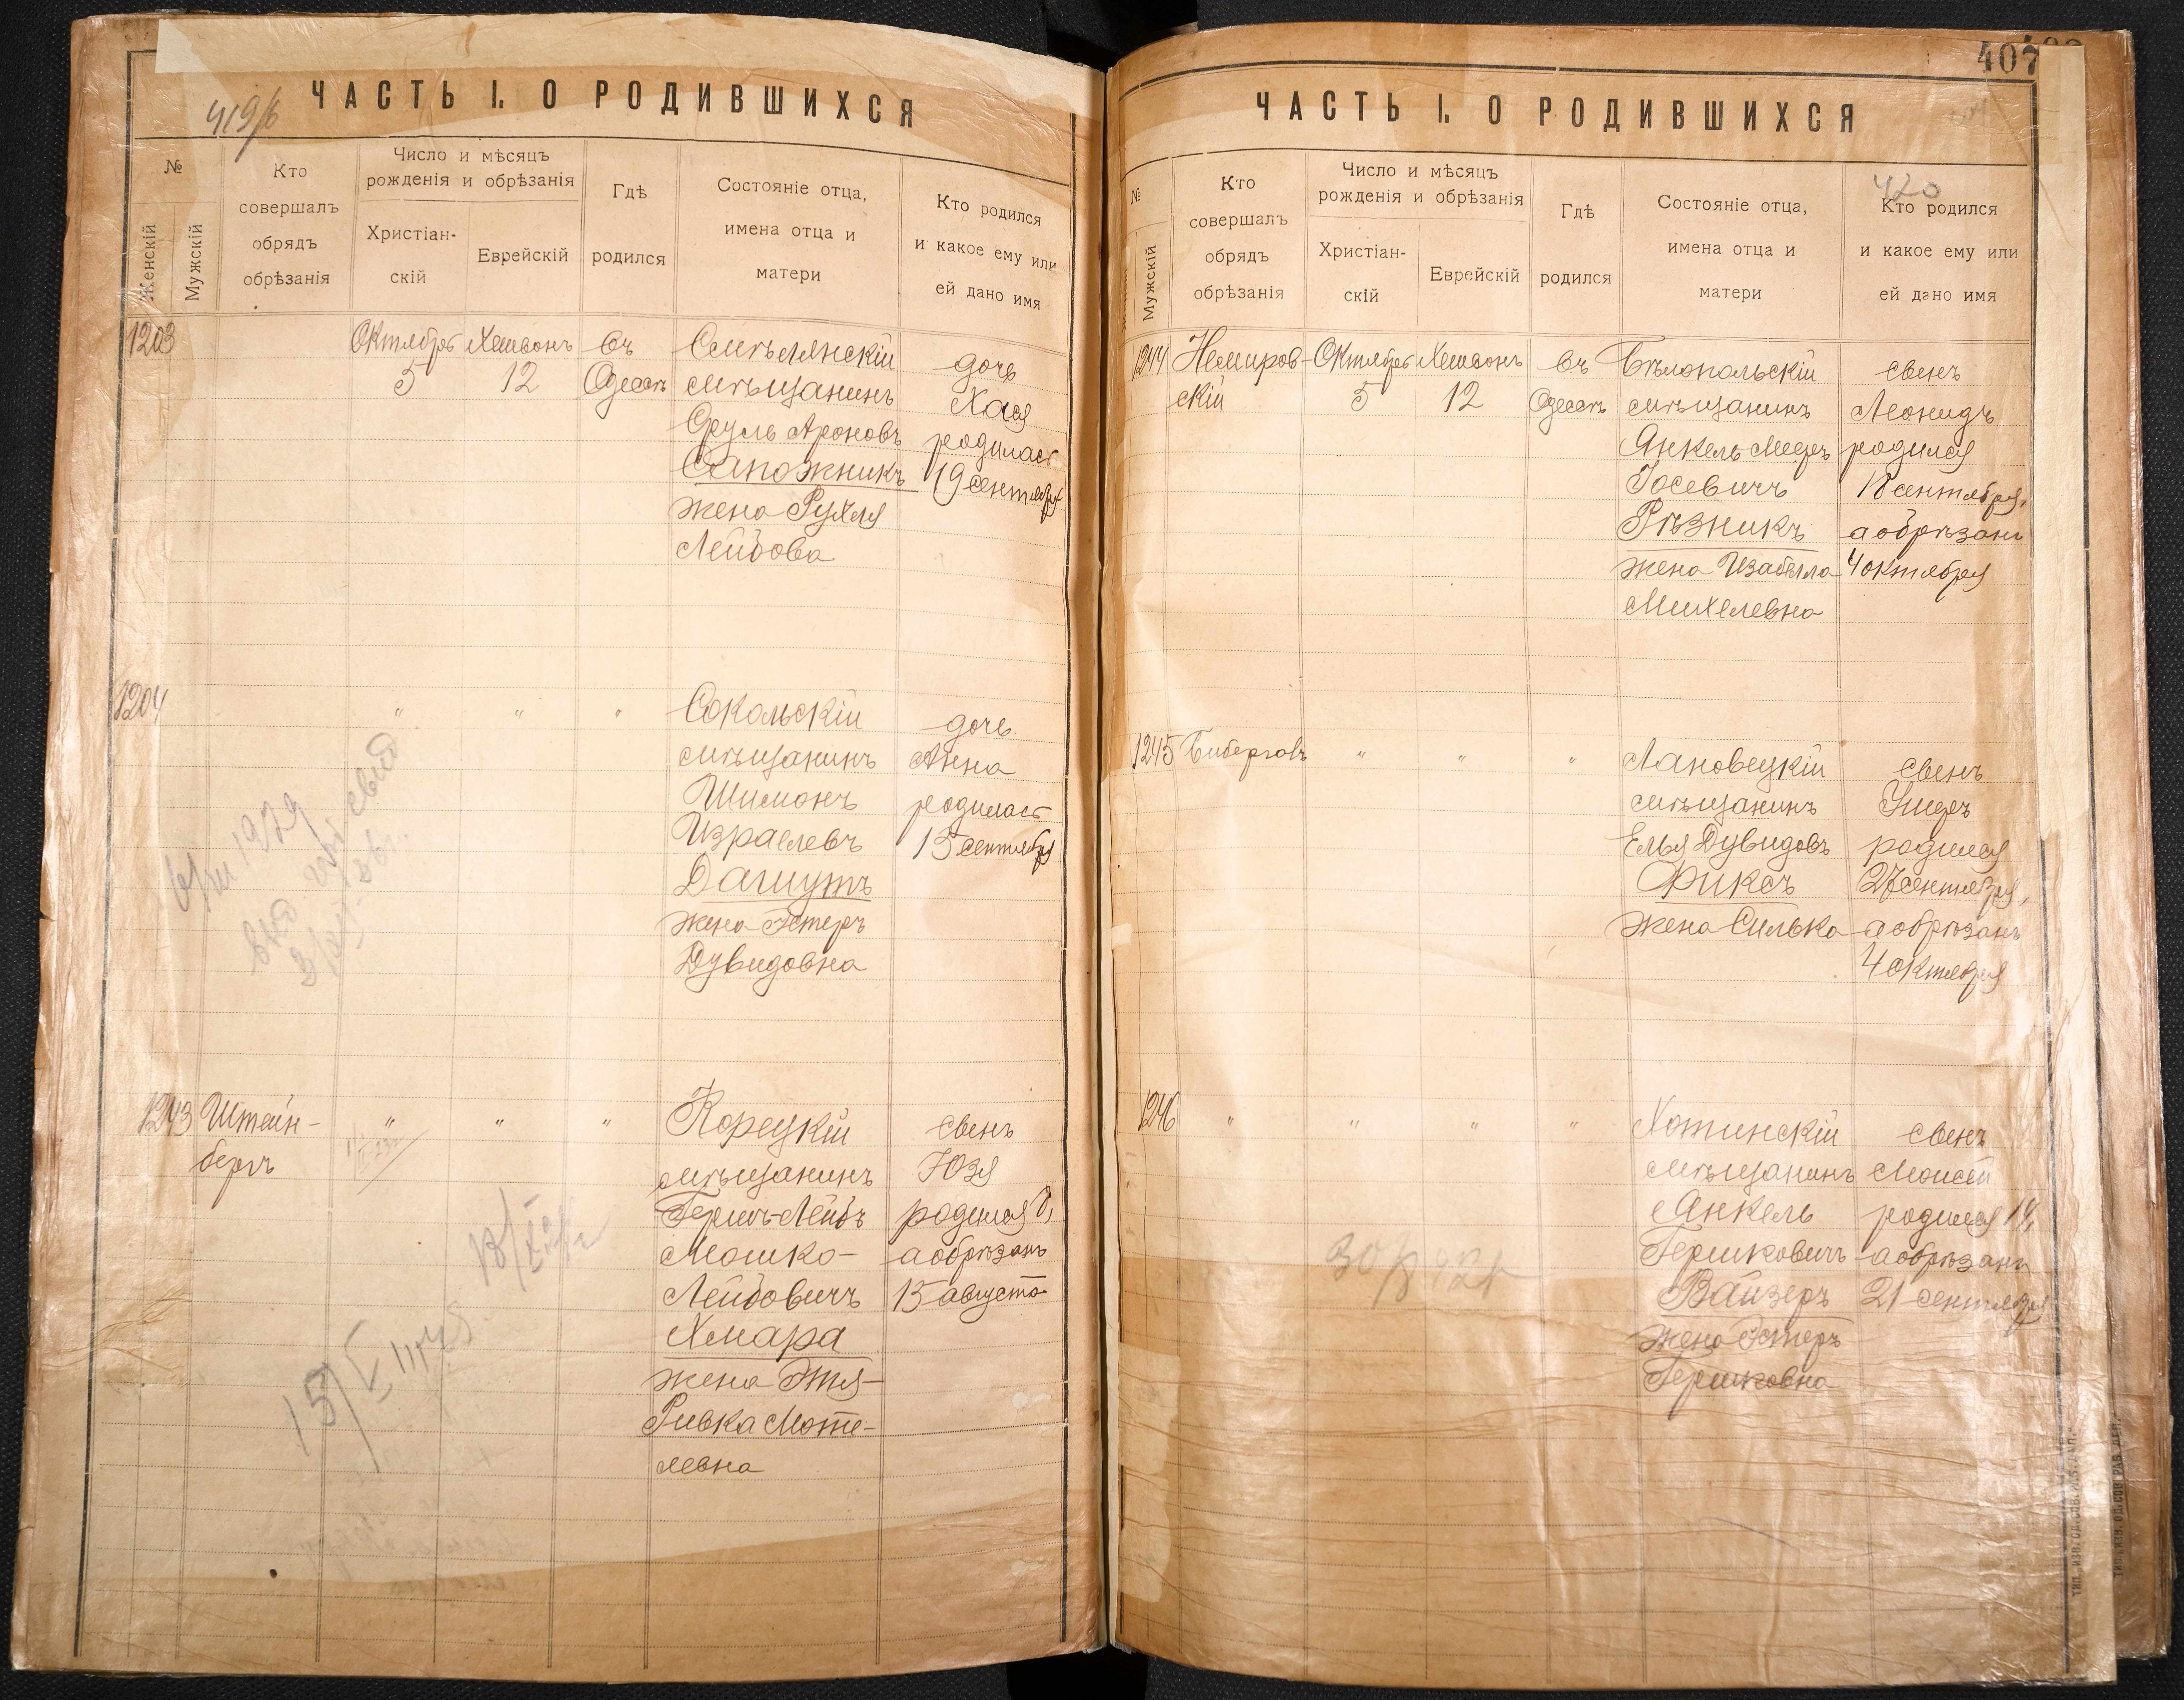 419/б
ЧАСТЬ I. О РОДИВШИХСЯ
№
Женскій
Мужскій
Кто
совершалъ
обрядъ
обрѣзанія
Число и мѣсяцъ
рожденія и обрѣзанія
Христіан-
скій
Еврейскій
Гдѣ
родился
Состояніе отца,
имена отца и
матери
Кто родился
и какое ему или
ей дано имя
1203
Октябрь
5
Хешвонъ
12
въ
Одессѣ
Смѣлянскій
мѣщанинъ
Сруль Ароновъ
Сапожникъ
жена Рухля
Лейбова
дочь
Хася
родилась
19 сентября
1204
"
"
"
Сокольскій
мѣщанинъ
Шимонъ
Израелевъ
Дашутъ
жена Эстеръ
Дувидовна
дочь
Анна
родилась
15 сентября
1243
Штейн-
бергъ
"
"
"
Корецкій
мѣщанинъ
Гершъ-Лейбъ
Мошко-
Лейбовичъ
Хмара
жена Этя-
Ривка Моте-
левна
сынъ
Юзя
родился 8,
а обрѣзанъ
15 августа
407
ЧАСТЬ I. О РОДИВШИХСЯ
420
№
Мужскій
Кто
совершалъ
обрядъ
обрѣзанія
Число и мѣсяцъ
рожденія и обрѣзанія
Христіан-
скій
Еврейскій
Гдѣ
родился
Состояніе отца,
имена отца и
матери
Кто родился
и какое ему или
ей дано имя
1244
Немиров-
скій
Октябрь
5
Хешвонъ
12
въ
Одессѣ
Бѣлопольскій
мѣщанинъ
Янкель Мееръ
Іосевичъ
Рѣзникъ
жена Изабелла
Михелевна
сынъ
Леонидъ
родился
18 сентября,
а обрѣзанъ
4 октября
1245
"
"
"
Лановецкій
мѣщанинъ
Елья Дувидовъ
Фиксъ
жена Силька
сынъ
Ушеръ
родился
27 сентября,
а обрѣзанъ
4 октября
1246
"
"
"
"
Хотинскій
мѣщанинъ
Янкель
Гершковичъ
Вайзеръ
жена Эстеръ
Гершковна
сынъ
Моисей
родился 14,
а обрѣзанъ
21 сентября